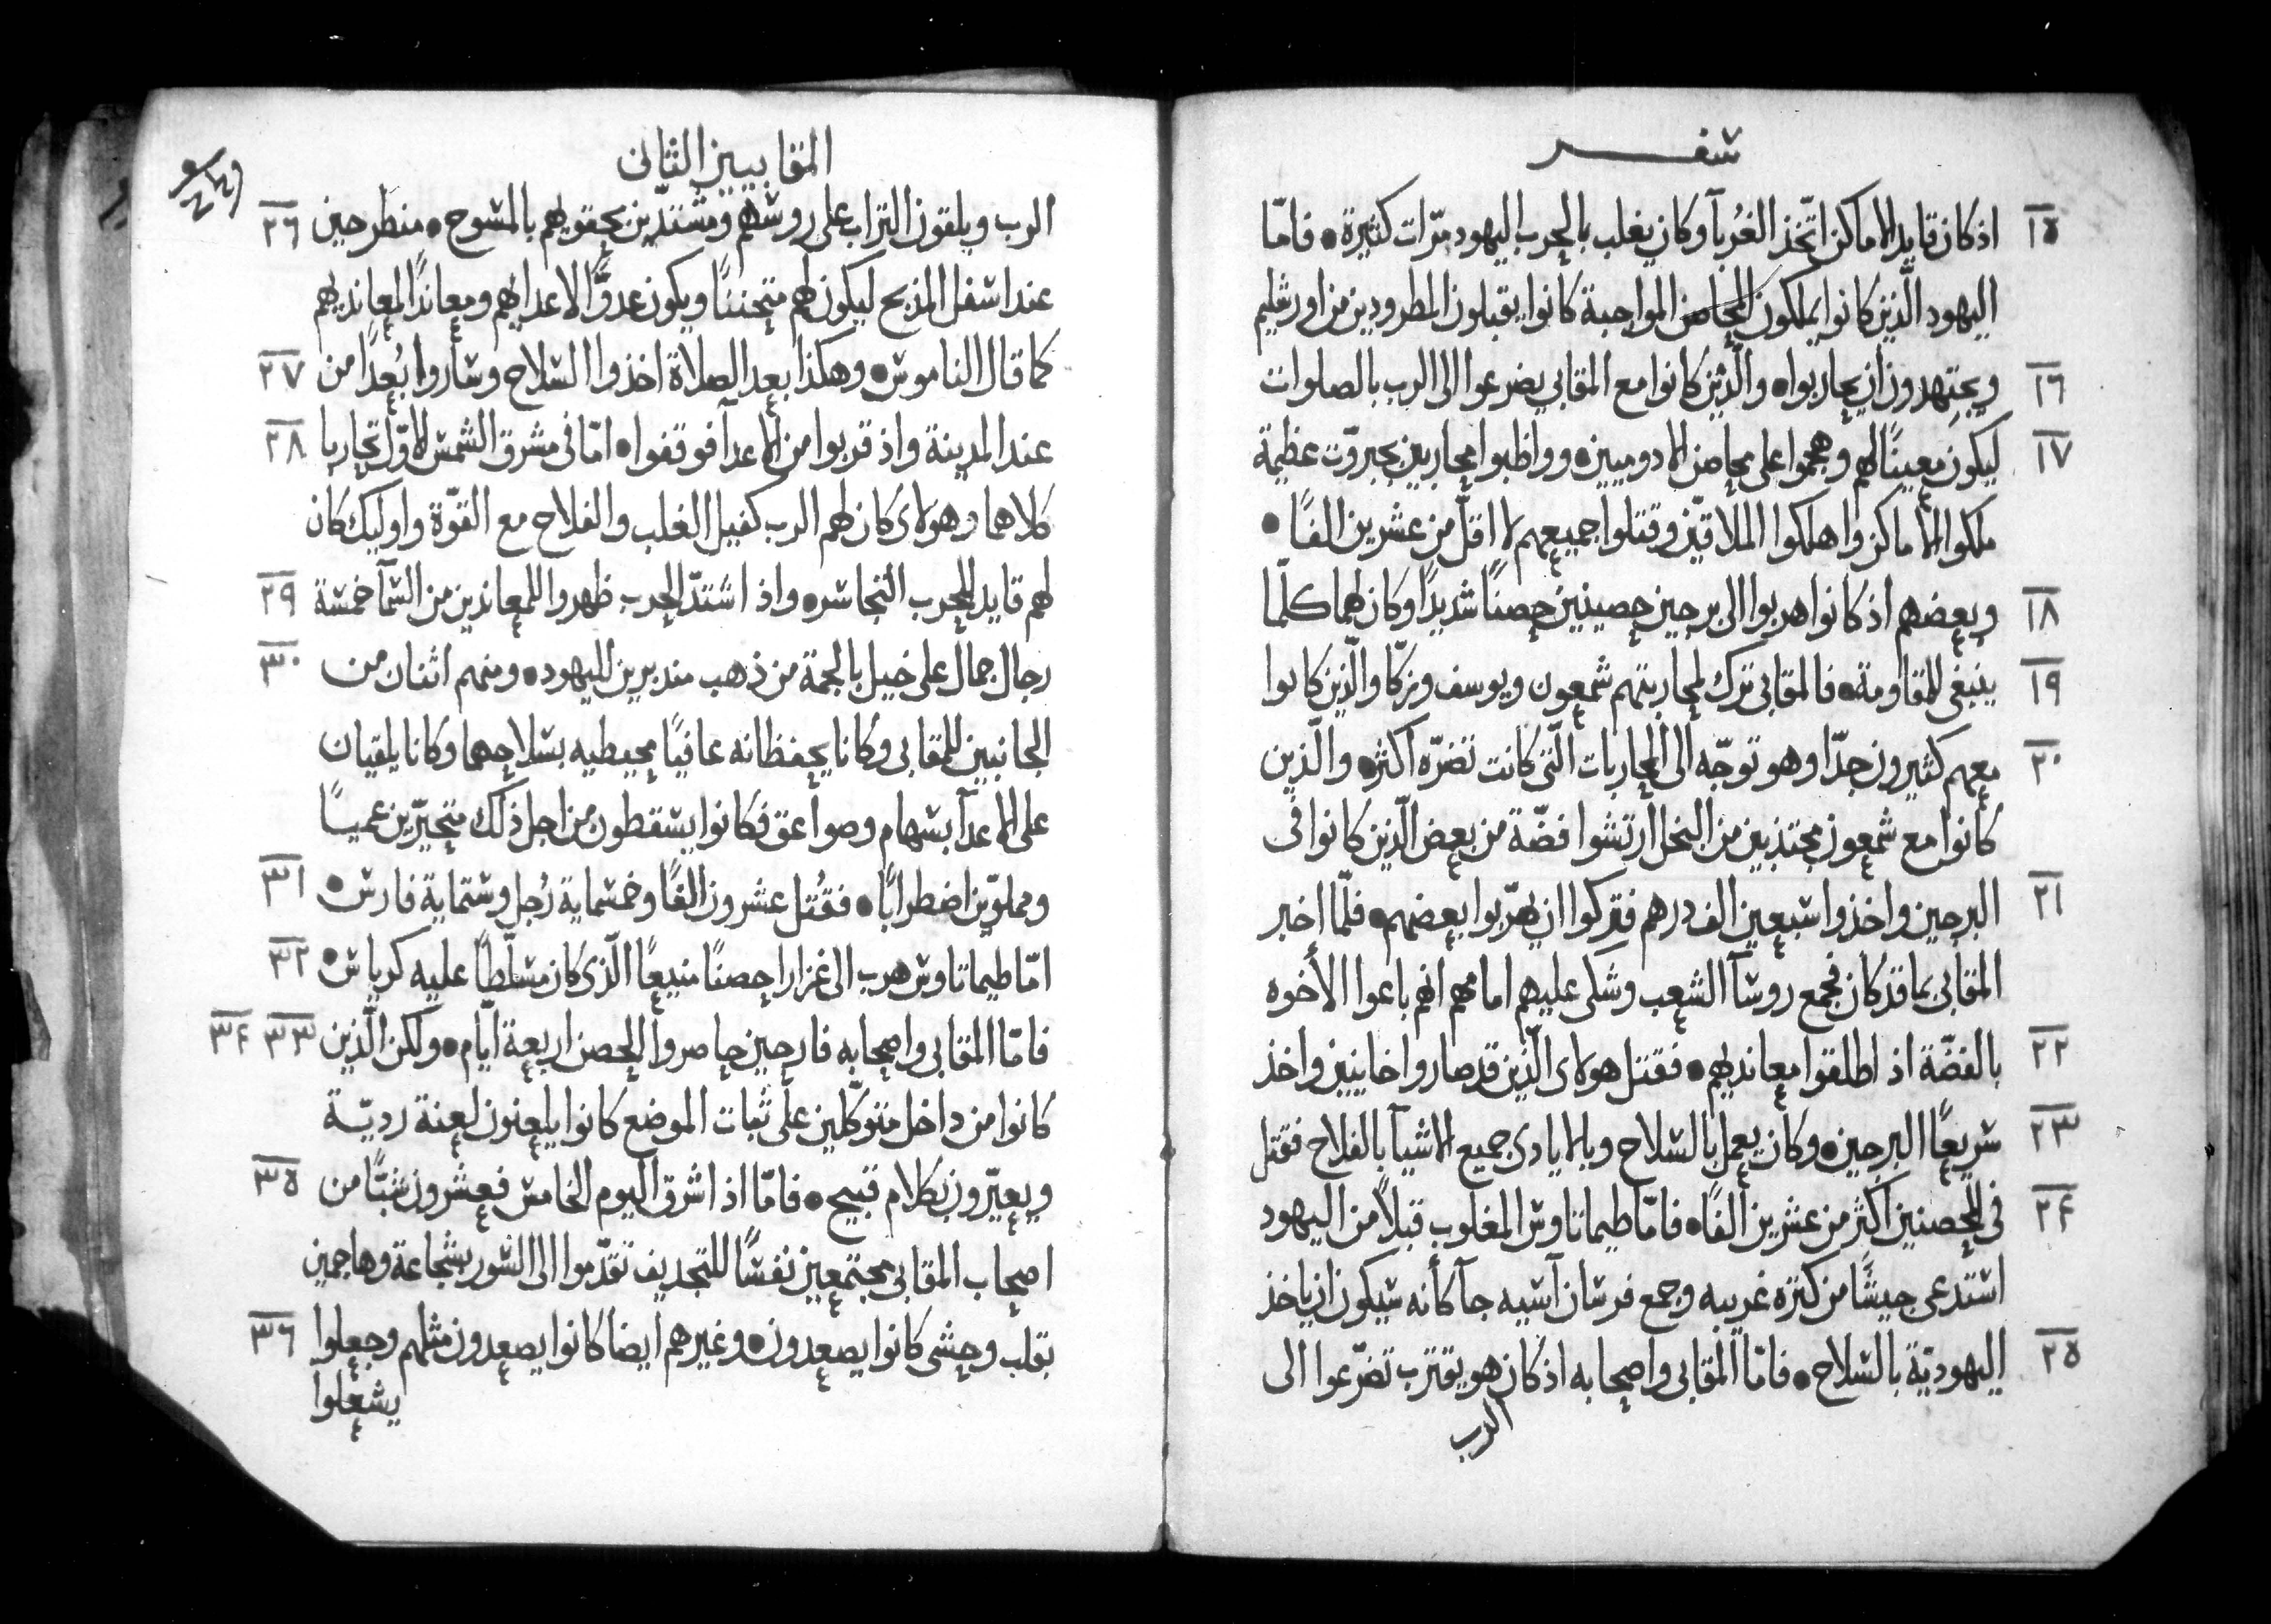 سفر
١٥ اذ كان قايد الاماكن اتّخذ الغُربآ وكان يغلب بالحرب اليهود مرّات كثيرة • فامّا
اليهود الّذين كانوا يملكون المحاصن المواجبة كانوا يقبلون المطرودين من اورشليم
١٦ ويجتهدون ان يحاربوا • والّذين كانوا مع المقابي يضرعوا الى الرب بالصلوات
١٧ ليكون معينًا لهم وهجموا على محاصن الادوميين • وواظبوا محاربين بجبروّت عظيمة
ملكوا الاماكن واهلكوا الملاقيّن وقتلوا جميعهم لا اقلّ من عشرين الفًا •
١٨ وبعضهم اذ كانوا هربوا الى برجين حصينين حصنًا شديدًا وكان لهما كلّما
١٩ ينبغى للمقاومة • فالمقابى ترك لمحاربتهم شمعون ويوسف وزكّا والّذين كانوا
٢٠ معهم كثيرون جدّا وهو توجّه الى المحاربات الّتى كانت تضرّه اكثر • والّذين
كانوا مع شمعون مجتذبين من البخل ارتشوا فضّة من بعض الّذين كانوا فى
٢١ البرجين واخذوا سبعين الف درهم فتركوا ان يهرّبوا بعضهم • فلمّا اخبر
المقابى بما قد كان فجمع روسآ الشعب وشكى عليهم امامهم انهم باعوا الأخوه
٢٢ بالفضّة اذ اطلقوا معانديهم • فقتل هولاى الّذين قد صاروا خاينين واخذ
٢٣ سريعًا البرجين • وكان يعمل بالسلاح وبالايادى جميع الاشيآ بالفلاح فقتل
٢٤ فى الحصنين اكثر من عشرين الفًا • فامّا طيماتاوس المغلوب قبلًا من اليهود
استدعى جيشًا من كثره غريبه وجمع فرسان آسيه جآ كأنه سيكون ان ياخذ
٢٥ اليهوديّة بالسلاح • فامّا المقابى واصحابه اذ كان هو يقترب تضرّعوا الى
الرب
المقابيين الثانى
٢٦ الرب ويلقون التراب على روسهم ومشتدّين بحقويهم بالمسوح • منطرحين
عند اسفل المذبح ليكون لهم متحننًا ويكون عدوًّا لاعدايهم ومعاندًا لمعانديهم
٢٧ كما قال الناموس • وهكذا بعد الصلاة اخذوا السلاح وساروا بُعدًا من
٢٨ عند المدينة واذ قربوا من الاعدآ فوقفوا • امّا فى مشرق الشمس الاوّل تحاربا
كلاهما وهولاى كان لهم الرب كفيل الغلب والفلاح مع القوّة واوليك كان
٢٩ لهم قايد للحرب التجاسر • واذ اشتدّ الحرب ظهروا للمعاندين من السمآ خمسة
٣٠ رجال جمال على خيل بالجمة من ذهب مندبرين لليهود • ومنهم اثنان من
الجانبين للمقابى وكانا يحفظانه عافيًا محيطيه بسلاحهما وكانا يلقيان
على الاعدآ بسهام وصواعق فكانوا يسقطون من اجل ذلك متحيّرين عميًا
٣١ ومملويّن اضطرابًا • فقُتل عشرون الفًا وخمسماية رُجل وستماية فارس •
٣٢ امّا طيماتاوس هرب الى غزارا حصنًا منيعًا الّذى كان مسلّطًا عليه كرياس •
٣٣ ٣٤ فامّا المقابى واصحابه فارحين حاصروا الحصن اربعة ايّام • ولكن الّذين
كانوا من داخل متوكّلين على ثبات الموضع كانوا يلعنون لعنة رديّة
٣٥ ويعيّرون بكلام قبيح • فامّا اذ اشرق اليوم الخامس فعشرون شبًّا من
اصحاب المقابى مجتمعين نفسًا للتجديف تقدّموا الى السور بشجاعة وهاجمين
٣٦ بقلب وحشى كانوا يصعدون • وغيرهم ايضا كانوا يصعدون مثلهم وجعلوا
يشعلوا